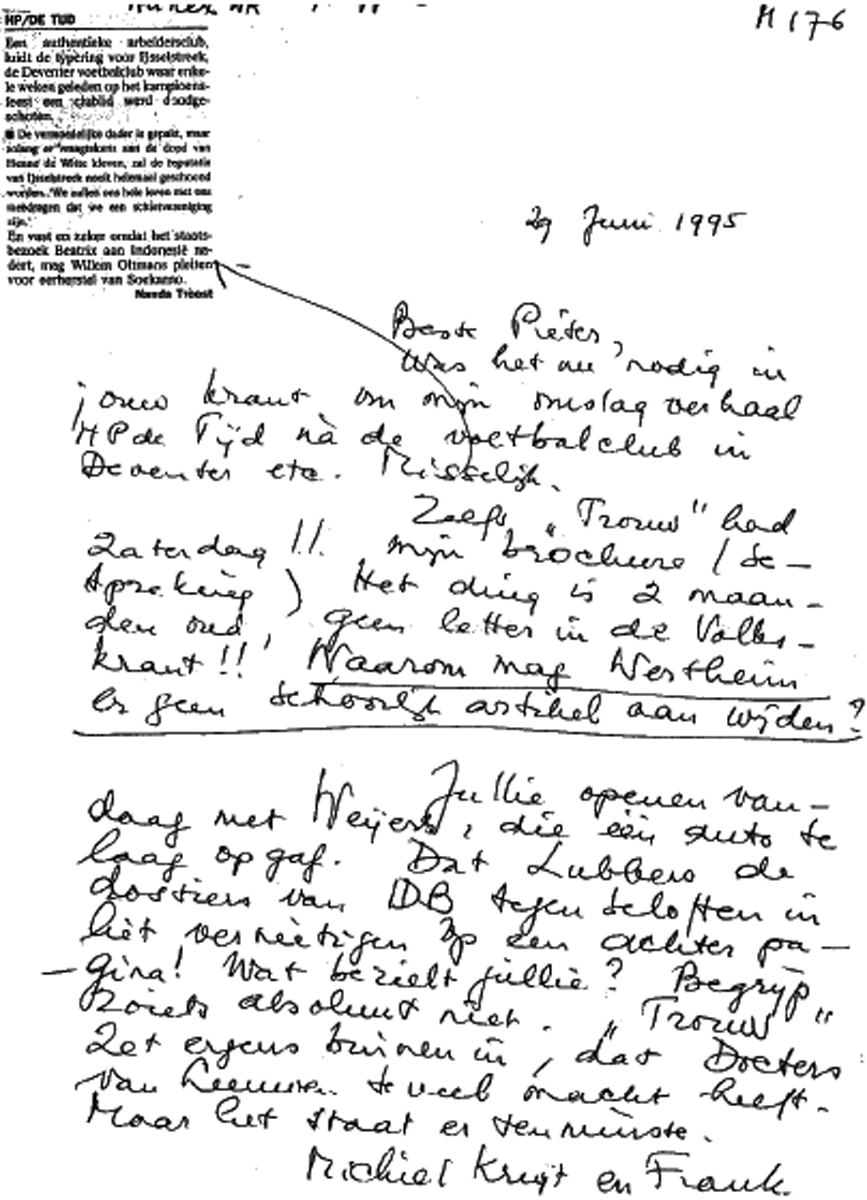 M 176
HP/DE TIJD
Een authentieke arbeidersclub,
luidt de typering voor IJsselstreek,
de Deventer voetbalclub waar enke-
le weken geleden op het kampioens-
feest een clublid werd doodge-
schoten.
■ De vermoedelijke dader is gepakt, maar
zolang er vraagtekens aan de dood van
de Witte kleven, zal de reputatie
van IJsselstreek nooit helemaal geschoond
worden. 'We zullen ons hele leven met ons
meedragen dat we een schietvereniging
zijn.'
En vast en zeker omdat het staats-
bezoek Beatrix aan Indonesië na-
dert, mag Willem Oltmans pleiten
voor eerherstel van Soekarno.
29 Juni 1995
Beste Pieter,
Was het nu nodig in
jouw krant om mijn omslag verhaal
HP de Tijd nà de voetbalclub in
Deventer etc. Misselijk.
Zelfs „Trouw" had
Zaterdag!! mijn brochure (be-
spreking) Het ding is 2 maan-
den oud, geen letter in de Volks-
krant!! Waarom mag Wertheim
er geen behoorlijk artikel aan wijden?
Jullie openen van-
daag met Weijers, die één auto te
laag opgaf. Dat Lubbers de
dossiers van IDB tegen beloften in
liet vernietigen op een achter pa-
- gina! Wat bezielt jullie? Begrijp
zoiets absoluut niet. „Trouw"
zet ergens binnen in, dat Docters
van Leeuwen te veel macht heeft.
Maar het staat er tenminste.
Michiel Kruijt en Frank